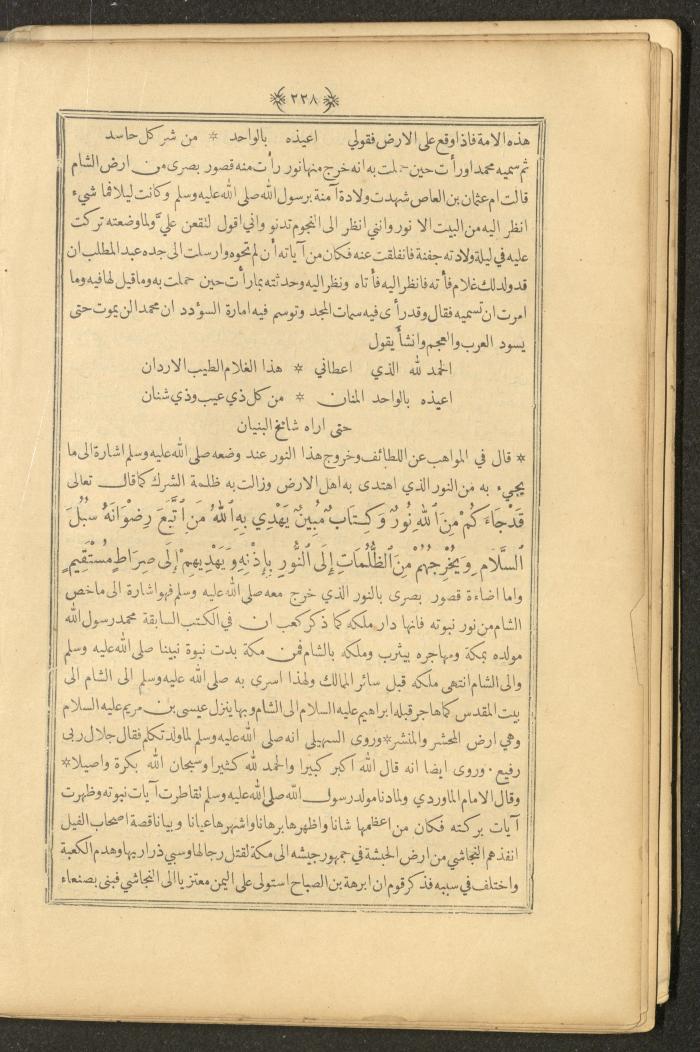 ﴿٢٢٨﴾
هذه الامة فاذا وقع على الارض فقولي اعيذه بالواحد * من شر كل حاسد
ثم سميه محمدا ورأت حين حملت به انه خرج منها نور رأت منه قصور بصرى من ارض الشام
قالت ام عثمان بن العاص شهدت ولادة آمنة برسول الله صلى الله عليه وسلم وكانت ليلا فما شيء
انظر اليه من البيت الا نور وانني انظر الى النجوم تدنو واني اقول لتقعن عليّ ولما وضعته تركت
عليه في ليلة ولادته جفنة فانفلقت عنه فكان من آياته أن لم تحوه وارسلت الى جده عبد المطلب ان
قد ولد لك غلام فأته فانظر اليه فأتاه ونظر اليه وحدثته بما رأت حين حملت به وما قيل لها فيه وما
امرت ان تسميه فقال وقد رأى فيه سمات المجد وتوسم فيه امارة السؤدد ان محمدا لن يموت حتى
يسود العرب والعجم وانشأ يقول
الحمد لله الذي اعطاني * هذا الغلام الطيب الاردان
اعيذه بالواحد المنان * من كل ذي عيب وذي شنان
حتى اراه شامخ البنيان
* قال في المواهب عن اللطائف وخروج هذا النور عند وضعه صلى الله عليه وسلم اشارة الى ما
يجيء به من النور الذي اهتدى به اهل الارض وزالت به ظلمة الشرك كما قال تعالى
قَدْ جَاءَكُمْ مِنَ ٱللهِ نُورٌ وَكِتَابٌ مُبِينٌ يَهْدِي بِهِ ٱللهُ مَنِ ٱتَّبَعَ رِضْوَانَهُ سُبُلَ
ٱلسَّلَامِ وَيُخْرِجُهُمْ مِنَ ٱلظُّلُمَاتِ إِلَى ٱلنُّورِ بِإِذْنِهِ وَيَهْدِيهِمْ إِلَى صِرَاطٍ مُسْتَقِيمٍ
واما اضاءة قصور بصرى بالنور الذي خرج معه صلى الله عليه وسلم فهو اشارة الى ما خص
الشام من نور نبوته فانها دار ملكه كما ذكر كعب ان في الكتب السابقة محمد رسول الله
مولده بمكة ومهاجره بيثرب وملكه بالشام فمن مكة بدت نبوة نبينا صلى الله عليه وسلم
والى الشام انتهى ملكه قبل سائر الممالك ولهذا اسرى به صلى الله عليه وسلم الى الشام الى
بيت المقدس كما هاجر قبله ابراهيم عليه السلام الى الشام وبها ينزل عيسى بن مريم عليه السلام
وهي ارض المحشر والمنشر * وروى السهيلي انه صلى الله عليه وسلم لما ولد تكلم فقال جلال ربى
رفيع . وروى ايضا انه قال الله أكبر كبيرا والحمد لله كثيرا وسبحان الله بكرة واصيلا *
وقال الامام الماوردي ولما دنا مولد رسول الله صلى الله عليه وسلم تقاطرت آيات نبوته وظهرت
آيات بركته فكان من اعظمها شانا واظهرها برهانا واشهرها عيانا وبيانا قصة اصحاب الفيل
انفذهم النجاشي من ارض الحبشة في جمهور جيشه الى مكة لقتل رجالها وسبي ذراريها وهدم الكعبة
واختلف في سببه فذكر قوم ان ابرهة بن الصباح استولى على اليمن معتزيا الى النجاشي فبنى بصنعاء